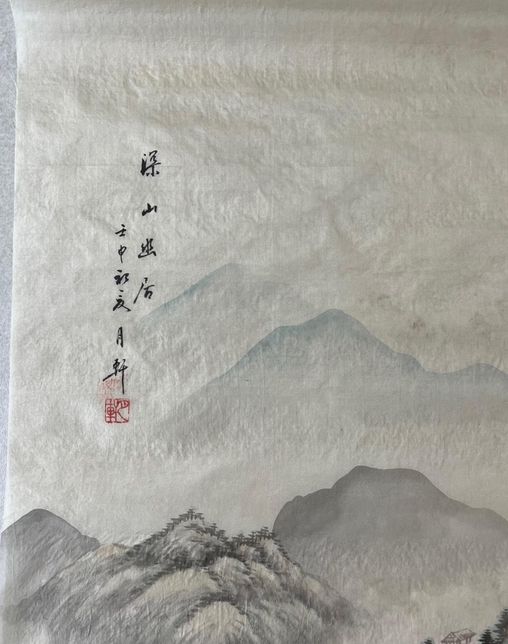 深山幽居
壬申初夏月軒